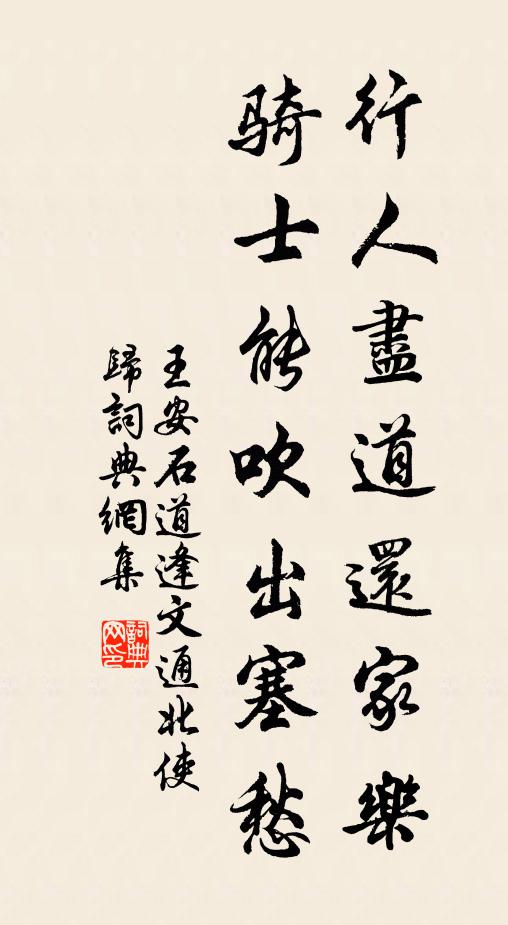 行人盡道還家樂
騎士能吹出塞愁
王安石道逢文通北使
歸詞典網集
詞典网印